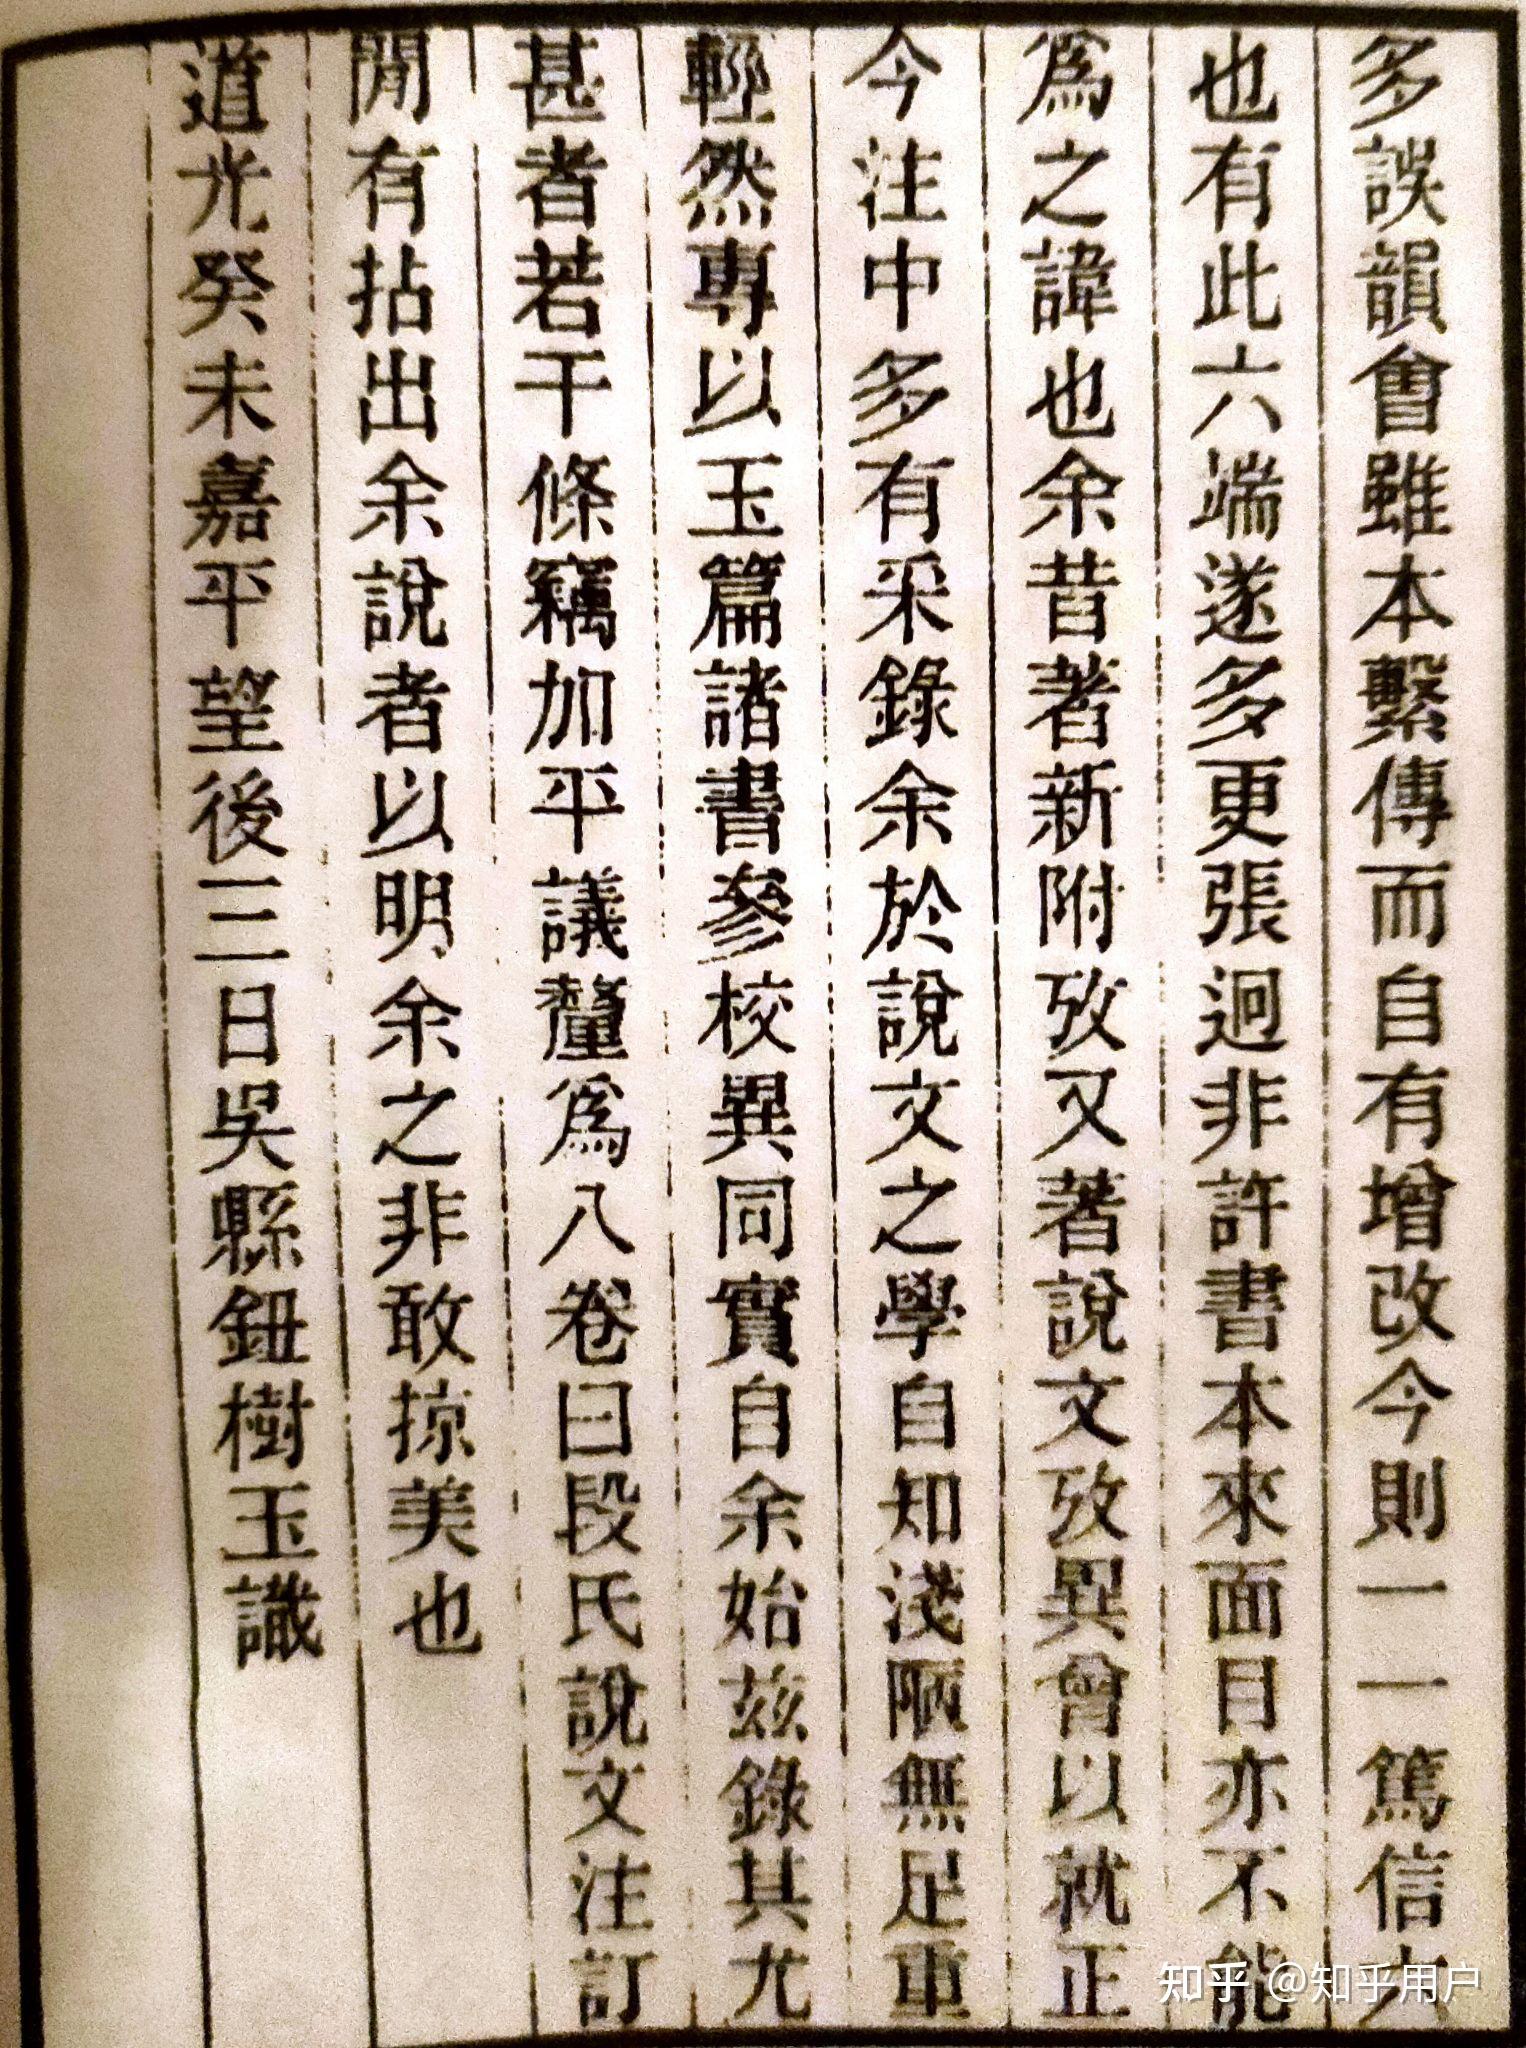 多誤韻會雖本繫傳而自有增改今則一一篤信六
也有此六端遂多更張迥非許書本來面目亦不能
爲之諱也余昔著新附攷又著說文攷異曾以就正
今注中多有采錄余於說文之學自知淺陋無足重
輕然專以玉篇諸書參校異同實自余始茲錄其尤
甚者若干條竊加平議釐爲八卷曰段氏說文注訂
閒有拈出余說者以明余之非敢掠美也
道光癸未嘉平望後三日吳縣鈕樹玉識
知乎 @知乎用户